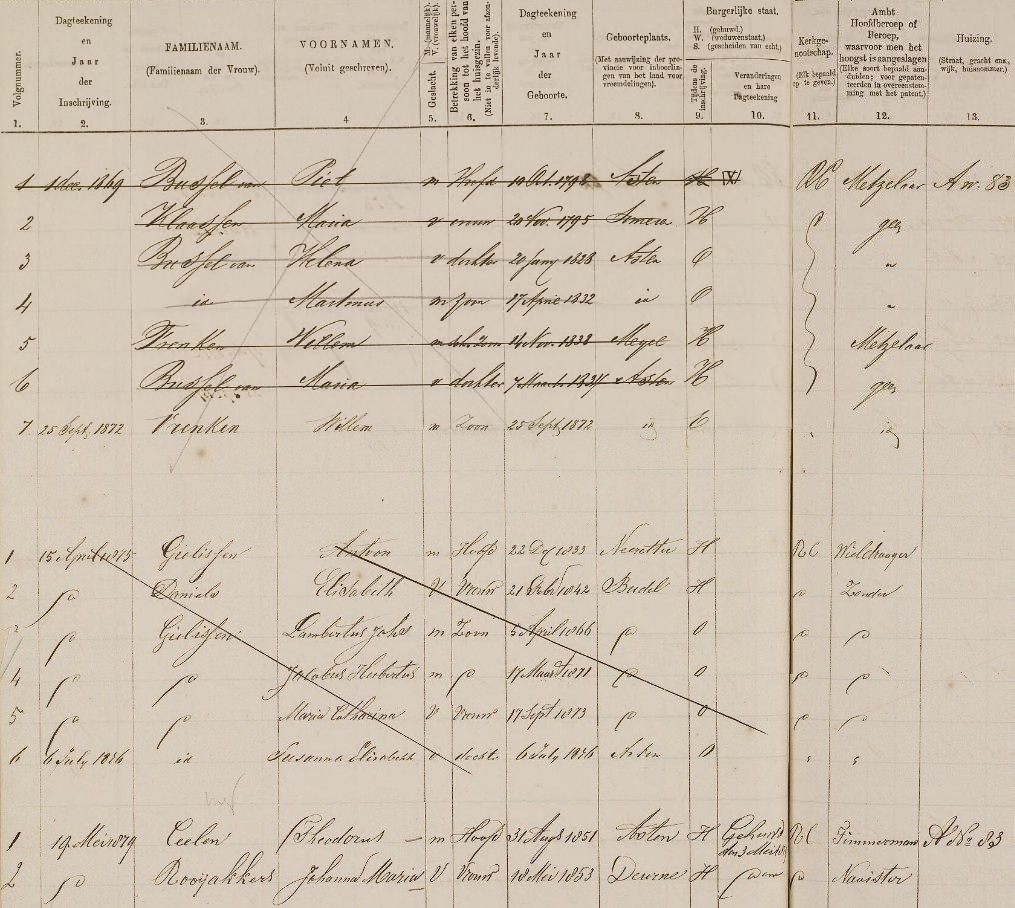 Volgnummer.
Dagteekening en Jaar der Inschrijving.
FAMILIENAAM. (Familienaam der Vrouw).
VOORNAMEN. (Voluit geschreven).
Geslacht. M. (mannelijk). V. (vrouwelijk).
Betrekking van elken persoon tot het hoofd van het huisgezin. (Niet in te vullen voor afzonderlijk levende).
Dagteekening en Jaar der Geboorte.
Geboorteplaats. (Met aanwijzing der provincie voor inboorlingen van het land voor vreemdelingen).
Burgerlijke staat.
H. (gehuwd.)
W. (weduwenstaat.)
S. (gescheiden van echt.)
Tijdens de inschrijving.
Veranderingen en hare Dagteekening
Kerkgenootschap. (Elk bepaald op te geven.)
Ambt Hoofdberoep of Beroep, waarvoor men het hoogst is aangeslagen
Huizing. (Straat, gracht enz., wijk, huisnommer.)
1. 2. 3. 4 5. 6. 7. 8. 9. 10. 11. 12. 13.
1 1 dec. 1869 Bussel van Piet m Hoofd 19 Oct. 1798 Asten H RC Metzelaar A w. 83
2 Klaassen Maria v vrouw 20 Nov. 1795 Someren H geen
3 Bussel van Helena v dochter 20 Jany 1828 Asten O "
4 id Martinus m zoon 17 April 1832 id O "
5 Frenken Willem m Nov. 1838 Megel H Metzelaar
6 Bussel van Maria v dochter 7 Maart Asten H geen
7 25 Sept 1872 Vrenken Willem m Zoon 25 Sept 1872 id O " id
1 15 April 1875 Gielissen Antoon m Hoofd 22 1833 Neeritter H RC
2 Daniels Elisabeth V Vrouw 21 1842 Budel H
Gielissen Lambertus Johs m Zoon 6 April 1866 O
4 Jacobus Hubertus m 17 Maart 1871 O
5 Maria Catharina V Vrouw 17 Sept 1873 O
6 6 July 1876 id Susanna Elisabeth v docht 6 July 1876 Asten O
1 19 Mei 1879 Ceelen Theodorus m Hoofd 31 Augs 1851 Asten H Gehuwd den 3 Mei RC Timmerman A No 83
2 Rooijakkers Johanna Maria V Vrouw 18 Mei 1853 Deurne H Naaister